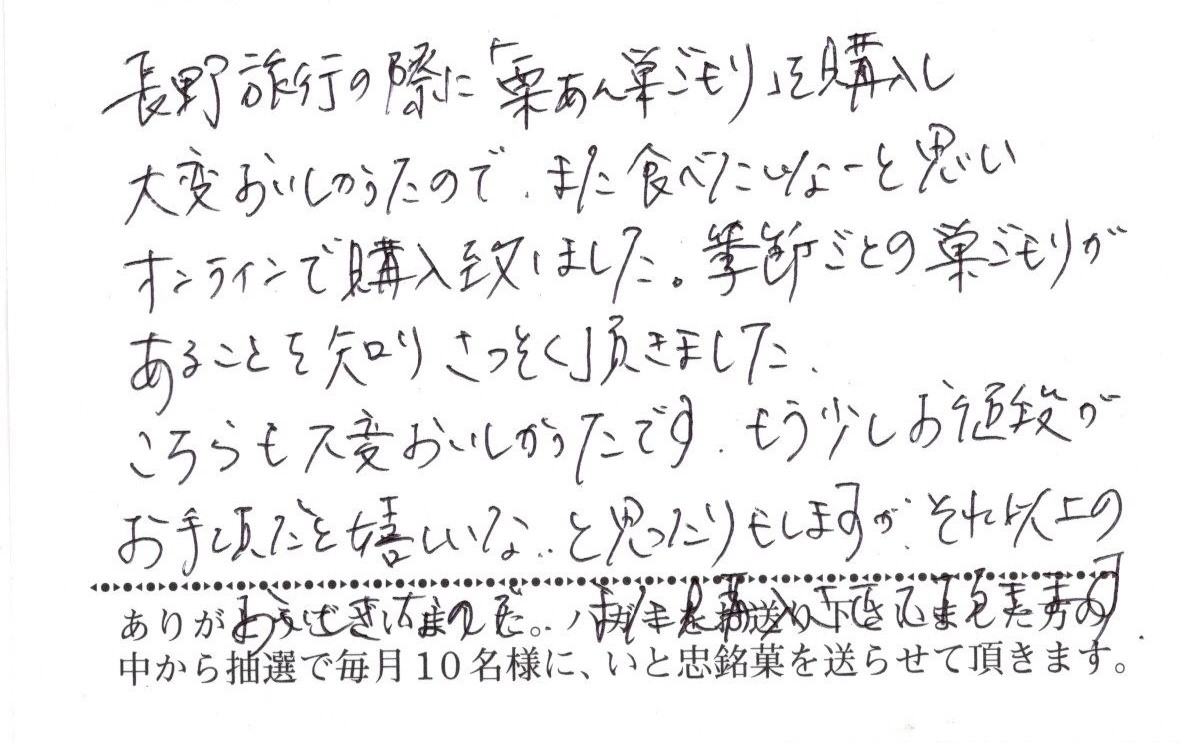 長野旅行の際に「栗あん巣ごモリ」を購入し
大変おいしかったので、また食べたいなーと思い
オンラインで購入致しました。季節ごとの巣ごモリが
あることを知りさっそく頂きました、
こちらも大変おいしかったです、もう少しお値段が
お手頃だと嬉しいな、、と思ったりもしますが、それ以上の
おいしさなので、また購入させて頂きます、
ありがとうございました。ハガキをお送り下さいました方の
中から抽選で毎月10名様に、いと忠銘菓を送らせて頂きます。